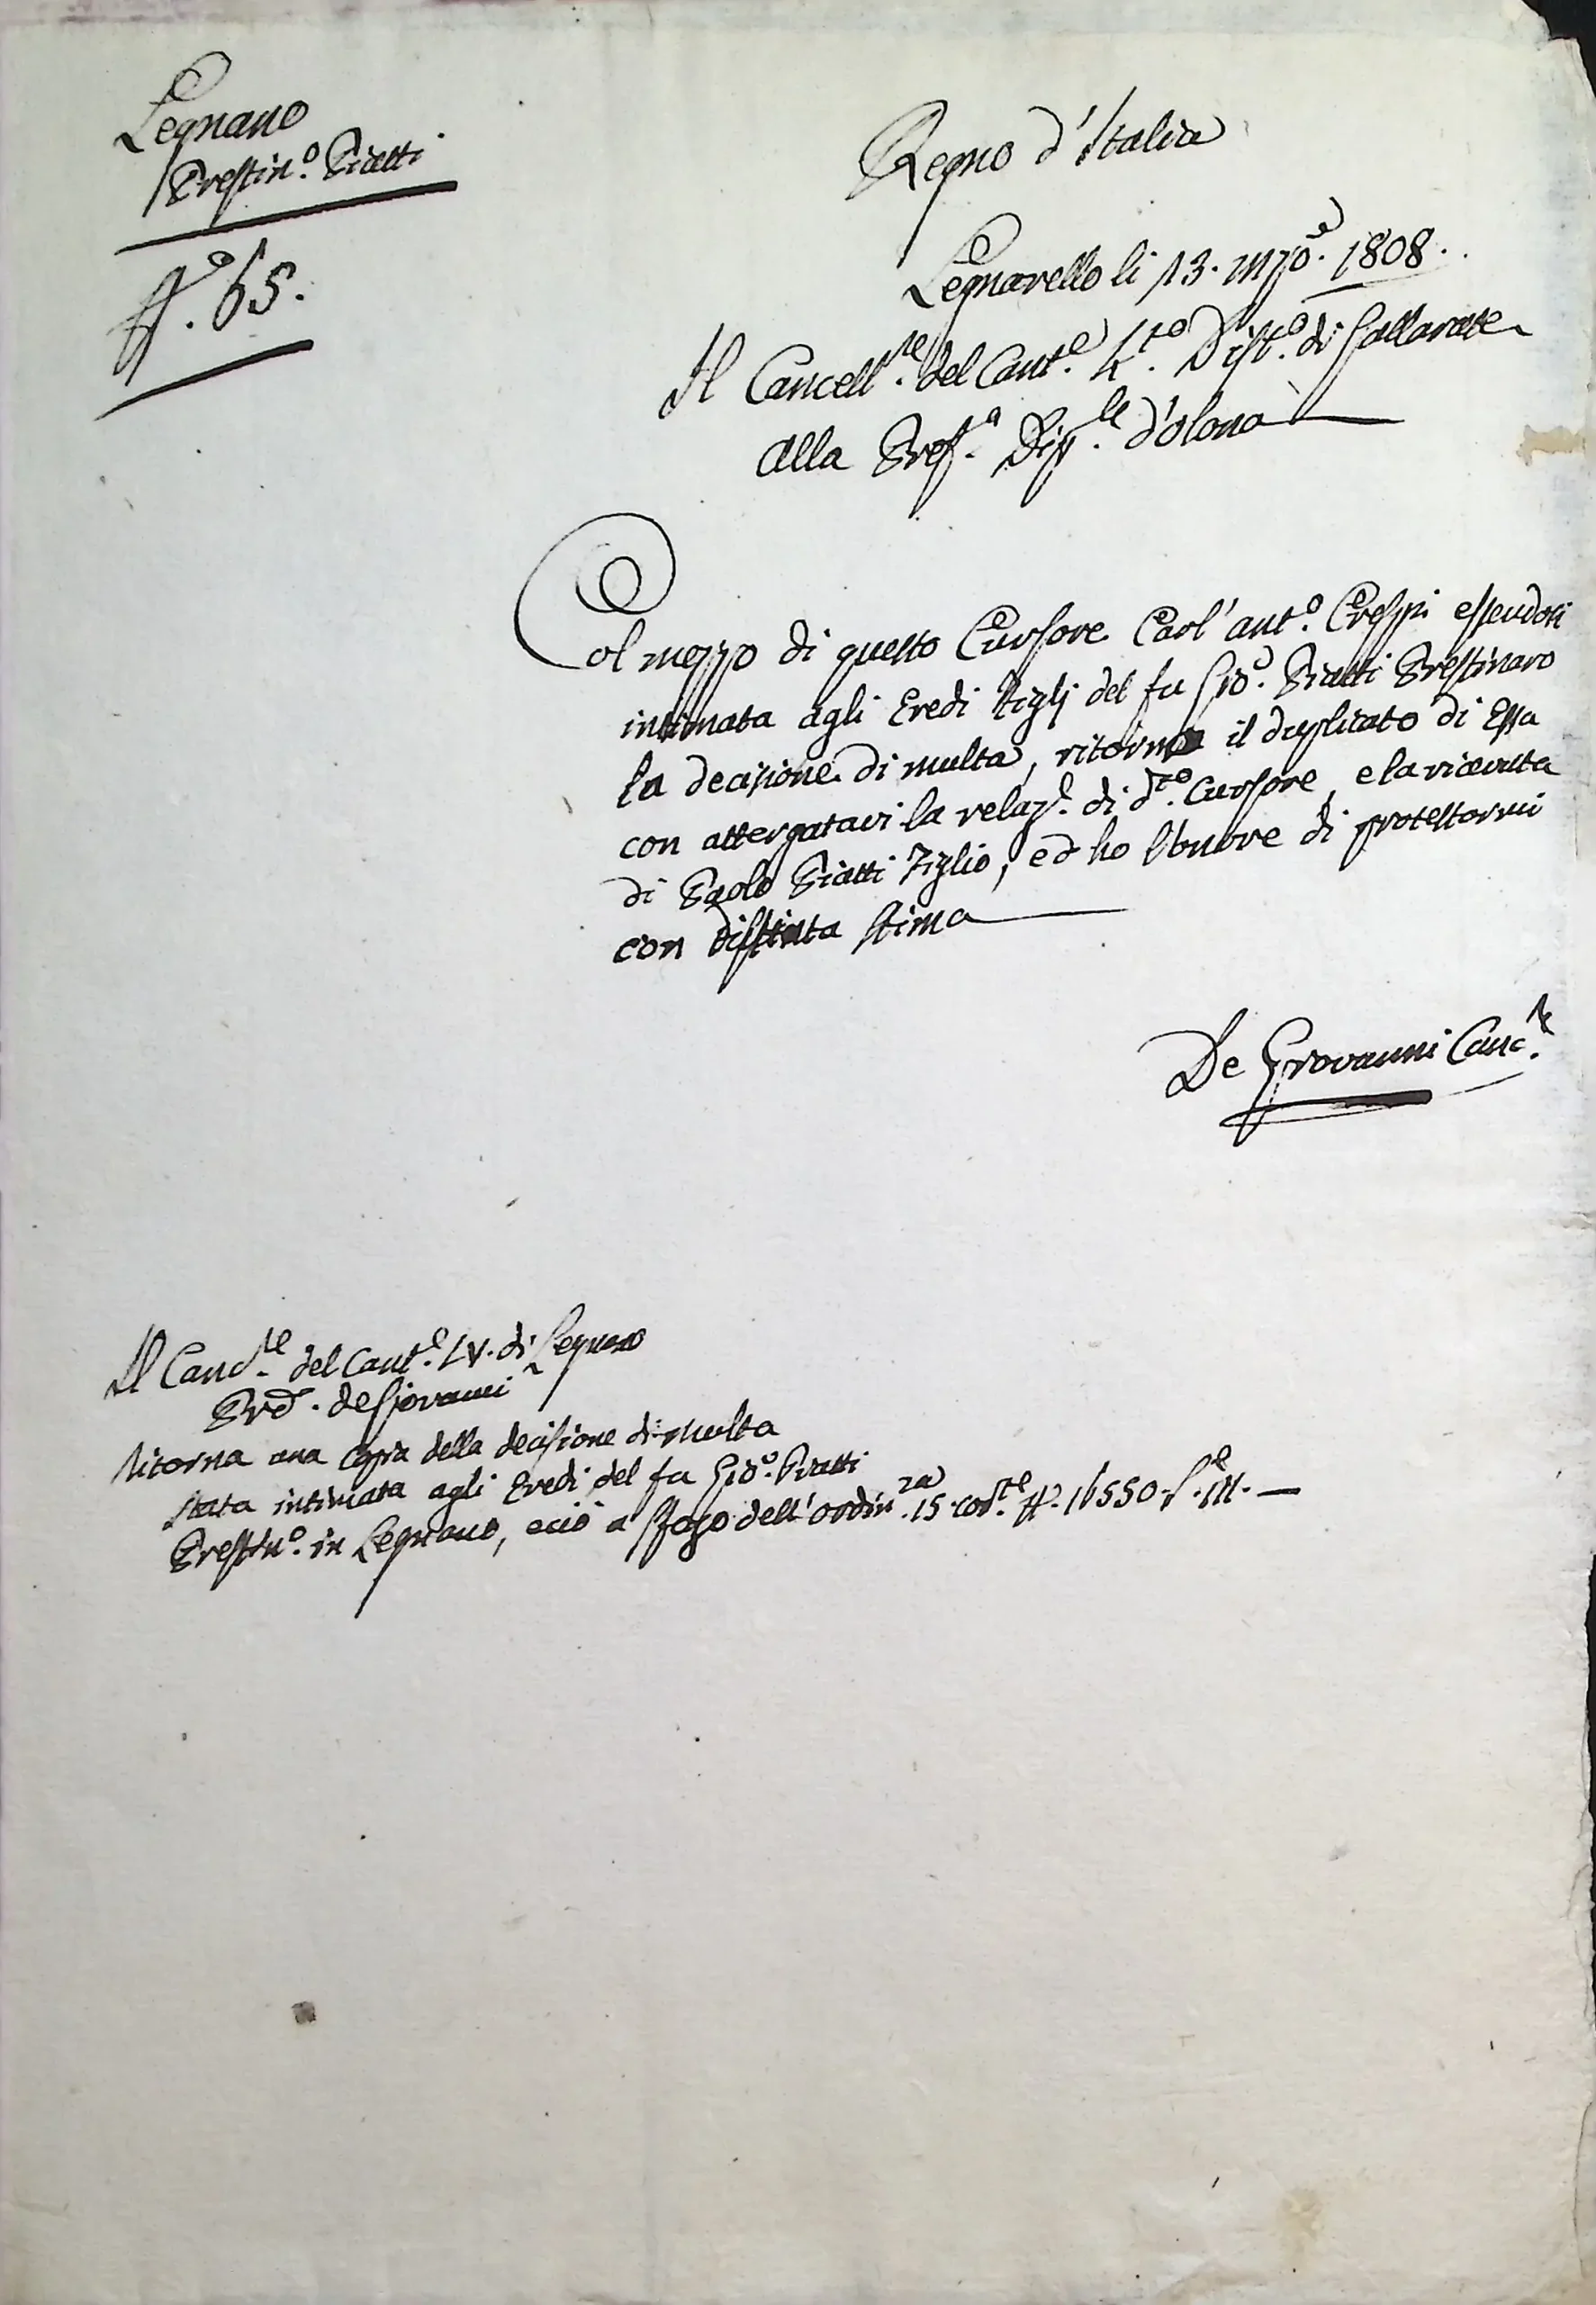 Legnano
Prestin.º Piatti
Nº. 65.
Regno d'Italia
Legnarello li 13. mzo. 1808.
Il Cancell.re del Cant.e 4.to Dist.o di Gallarate
alla Pref.a Dip.le d'olona
Col mezzo di questo Cursore Carl'ant.o Crespi essendosi
intimata agli Eredi figlj del fu Gio. Piatti Prestinaro
la decisione di multa, ritorno il duplicato di Essa
con attergatavi la relaz.e di d.to Cursore, e la ricevuta
di Paolo Piatti Figlio, ed ho l'onore di protestarmi
con distinta stima
De Giovanni Canc.re
Il Canc.re del Cant.e IV. di Legnano
Prd. de Giovanni
Ritorna una Copia della decisione di multa
stata intimata agli Eredi del fu Gio. Piatti
Prestin.o in Legnano, e ciò a sfogo dell'ordin.za 15 cor.te N. 16550. S.e III.